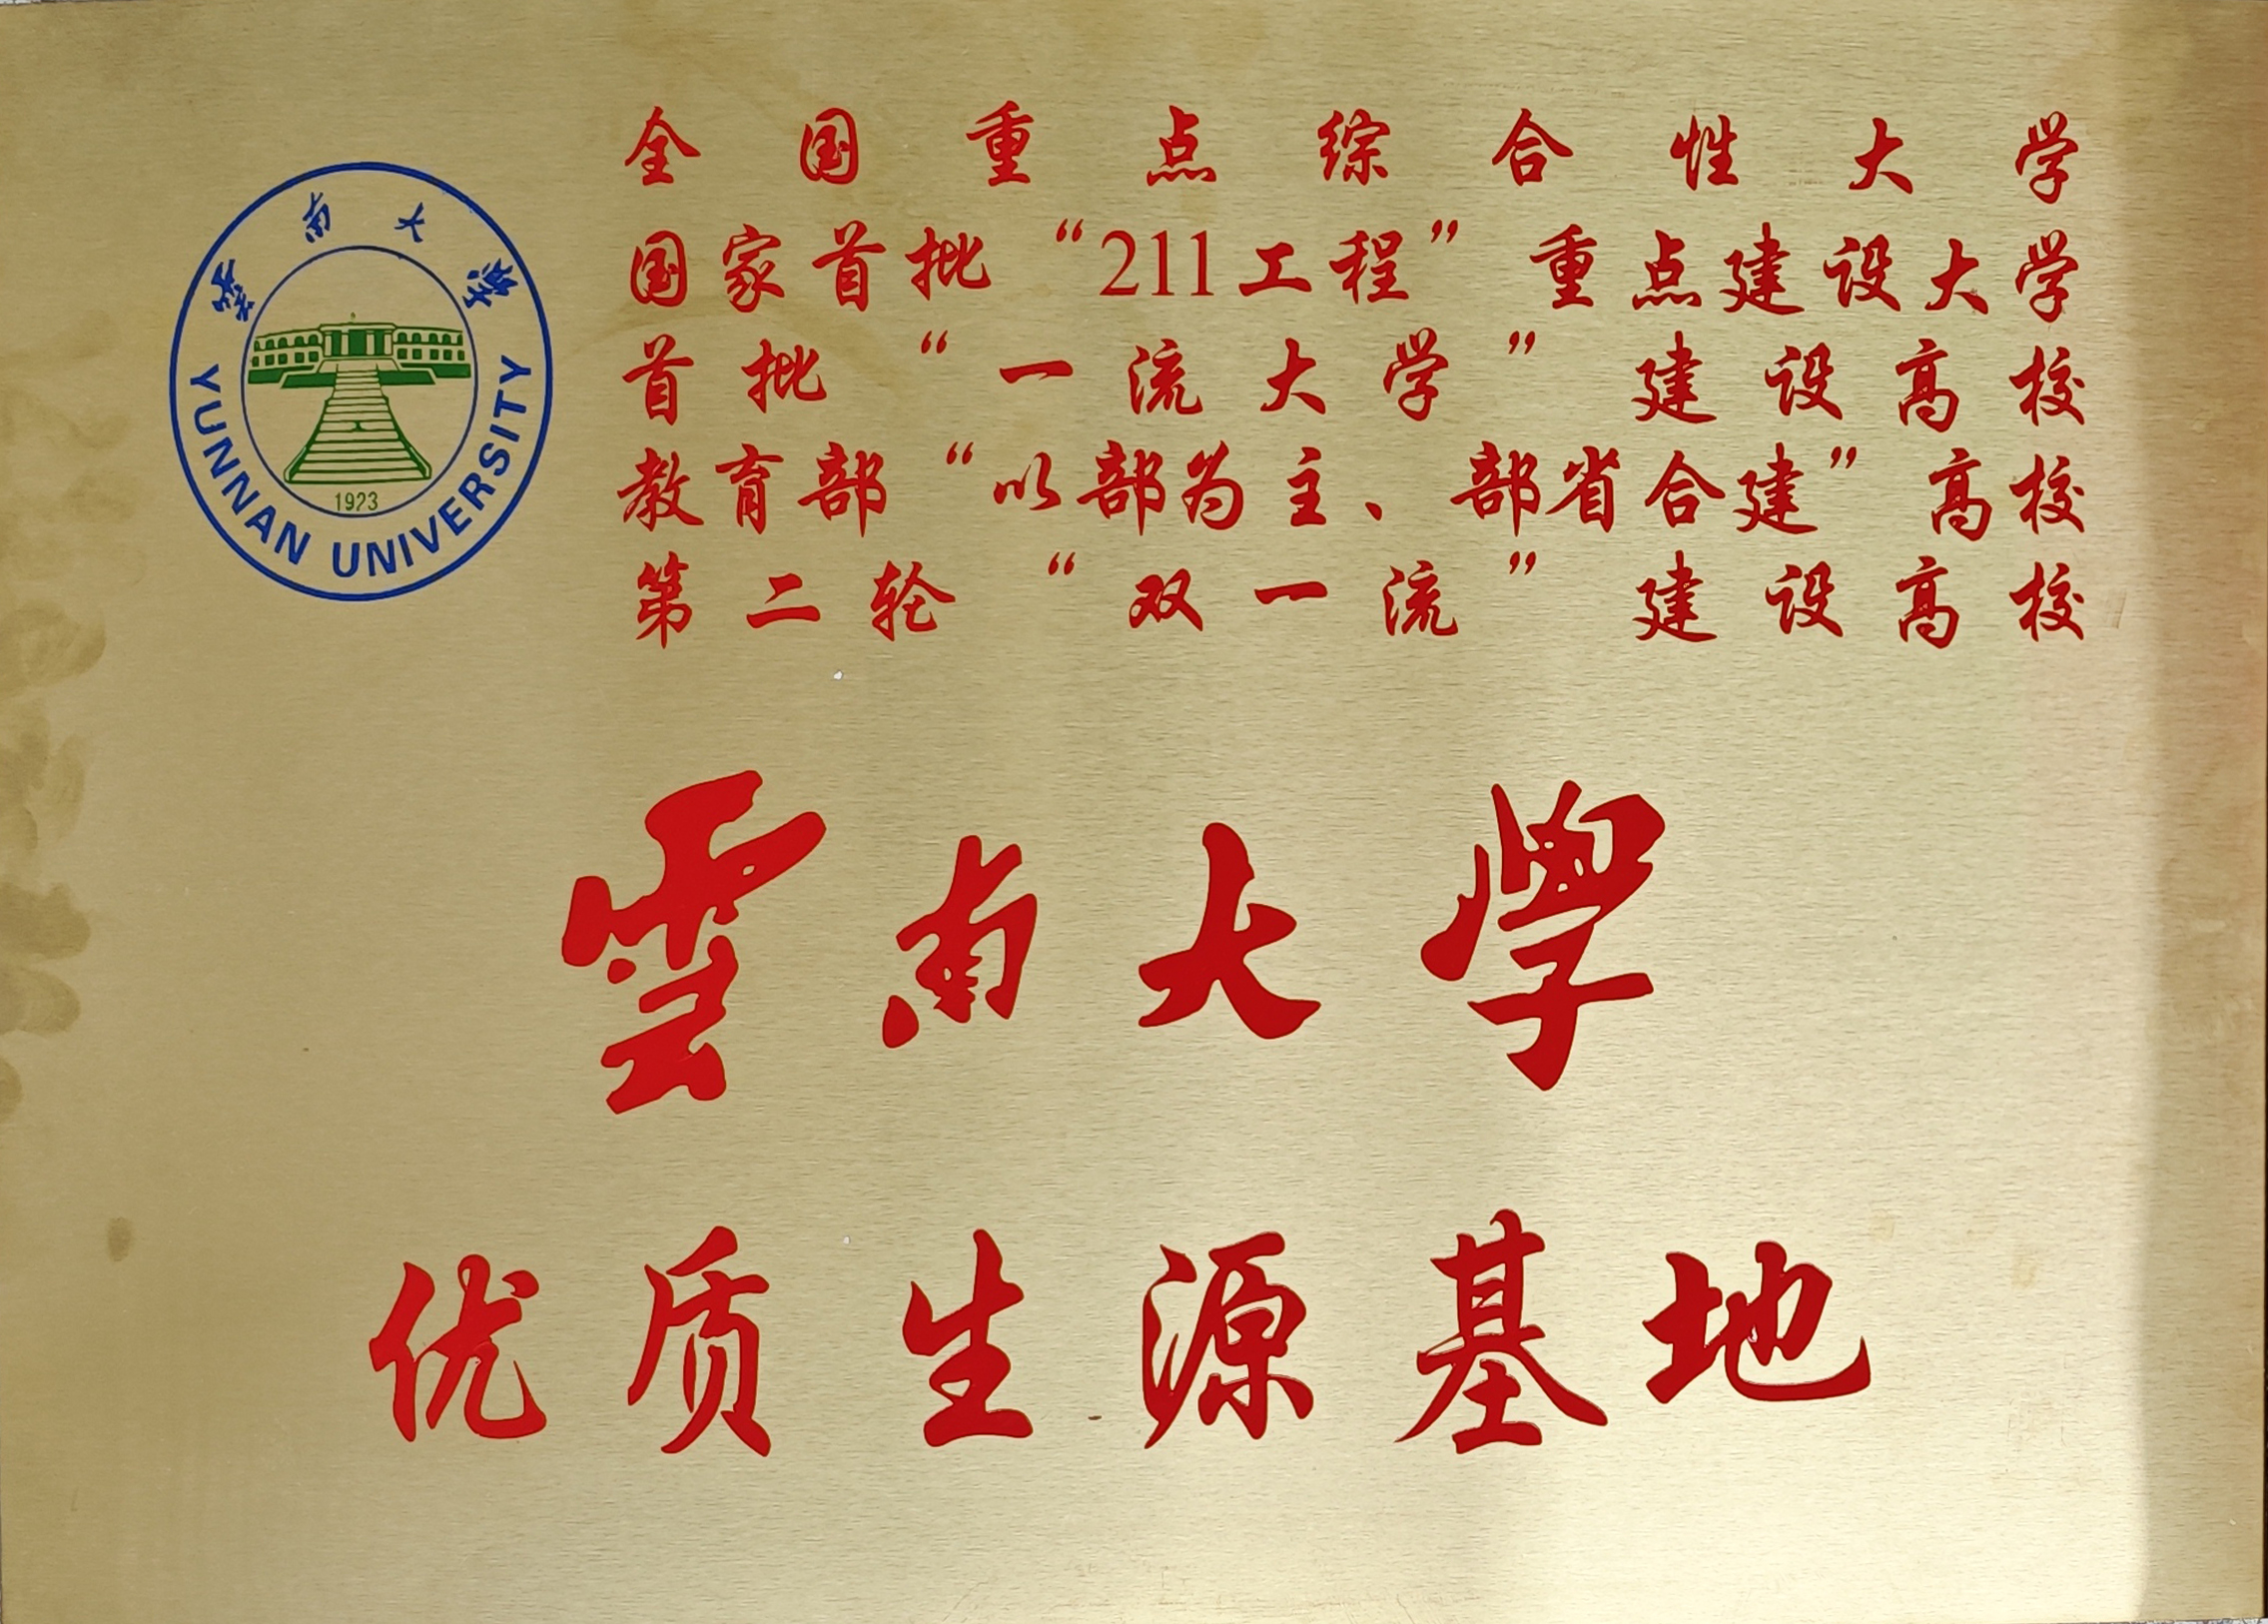 雲南大學
YUNNAN UNIVERSITY
1923
全国重点综合性大学
国家首批“211工程”重点建设大学
首批“一流大学”建设高校
教育部“以部为主、部省合建”高校
第二轮“双一流”建设高校
雲南大學
优质生源基地